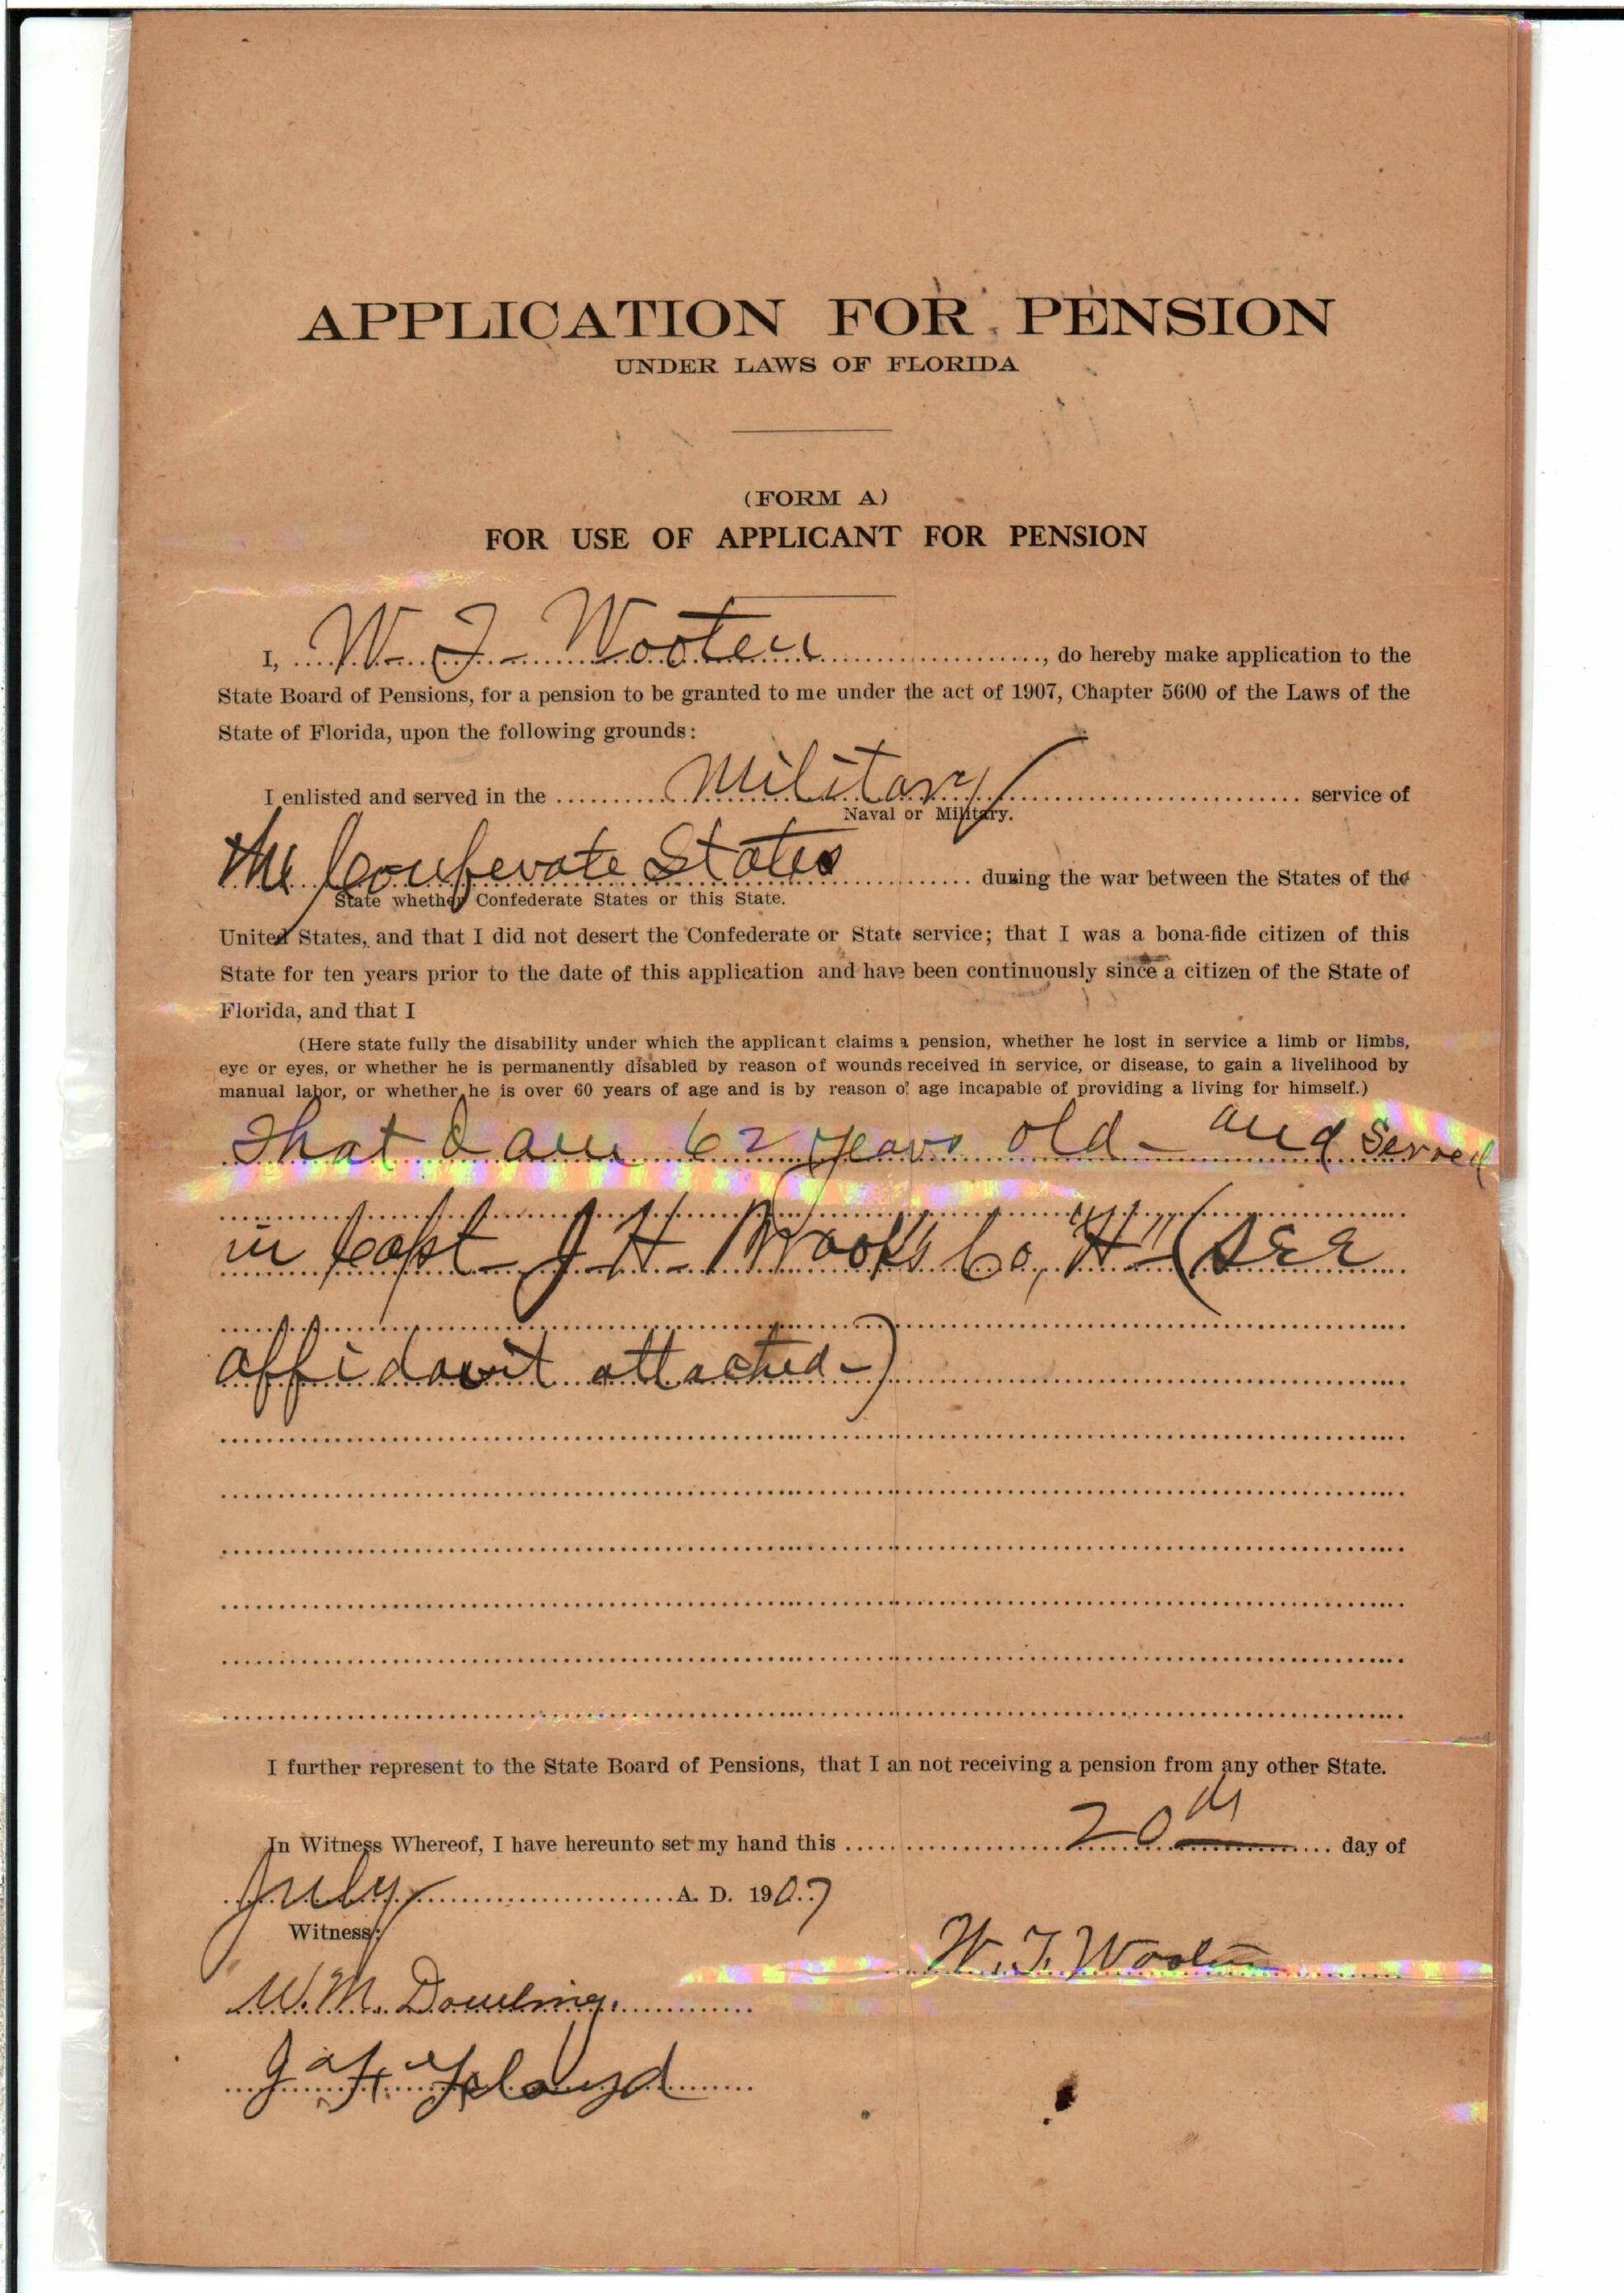 APPLICATION FOR PENSION
UNDER LAWS OF FLORIDA
(FORM A)
FOR USE OF APPLICANT FOR PENSION
I, W. J. Wooten, do hereby make application to the
State Board of Pensions, for a pension to be granted to me under the act of 1907, Chapter 5600 of the Laws of the
State of Florida, upon the following grounds:
I enlisted and served in the Military service of
Naval or Military.
the Confevate States during the war between the States of the
State whether Confederate States or this State.
United States, and that I did not desert the Confederate or State service; that I was a bona-fide citizen of this
State for ten years prior to the date of this application and have been continuously since a citizen of the State of
Florida, and that I
(Here state fully the disability under which the applicant claims a pension, whether he lost in service a limb or limbs,
eye or eyes, or whether he is permanently disabled by reason of wounds received in service, or disease, to gain a livelihood by
manual labor, or whether he is over 60 years of age and is by reason of age incapable of providing a living for himself.)
That I am 62 years old - and served
in Capt - J. H. Co, "H" (See
affidavit attached -)
I further represent to the State Board of Pensions, that I an not receiving a pension from any other State.
In Witness Whereof, I have hereunto set my hand this 20th day of
July A. D. 1907
Witness:
W. J. Wooten
W. M. Dowling.
Floyd